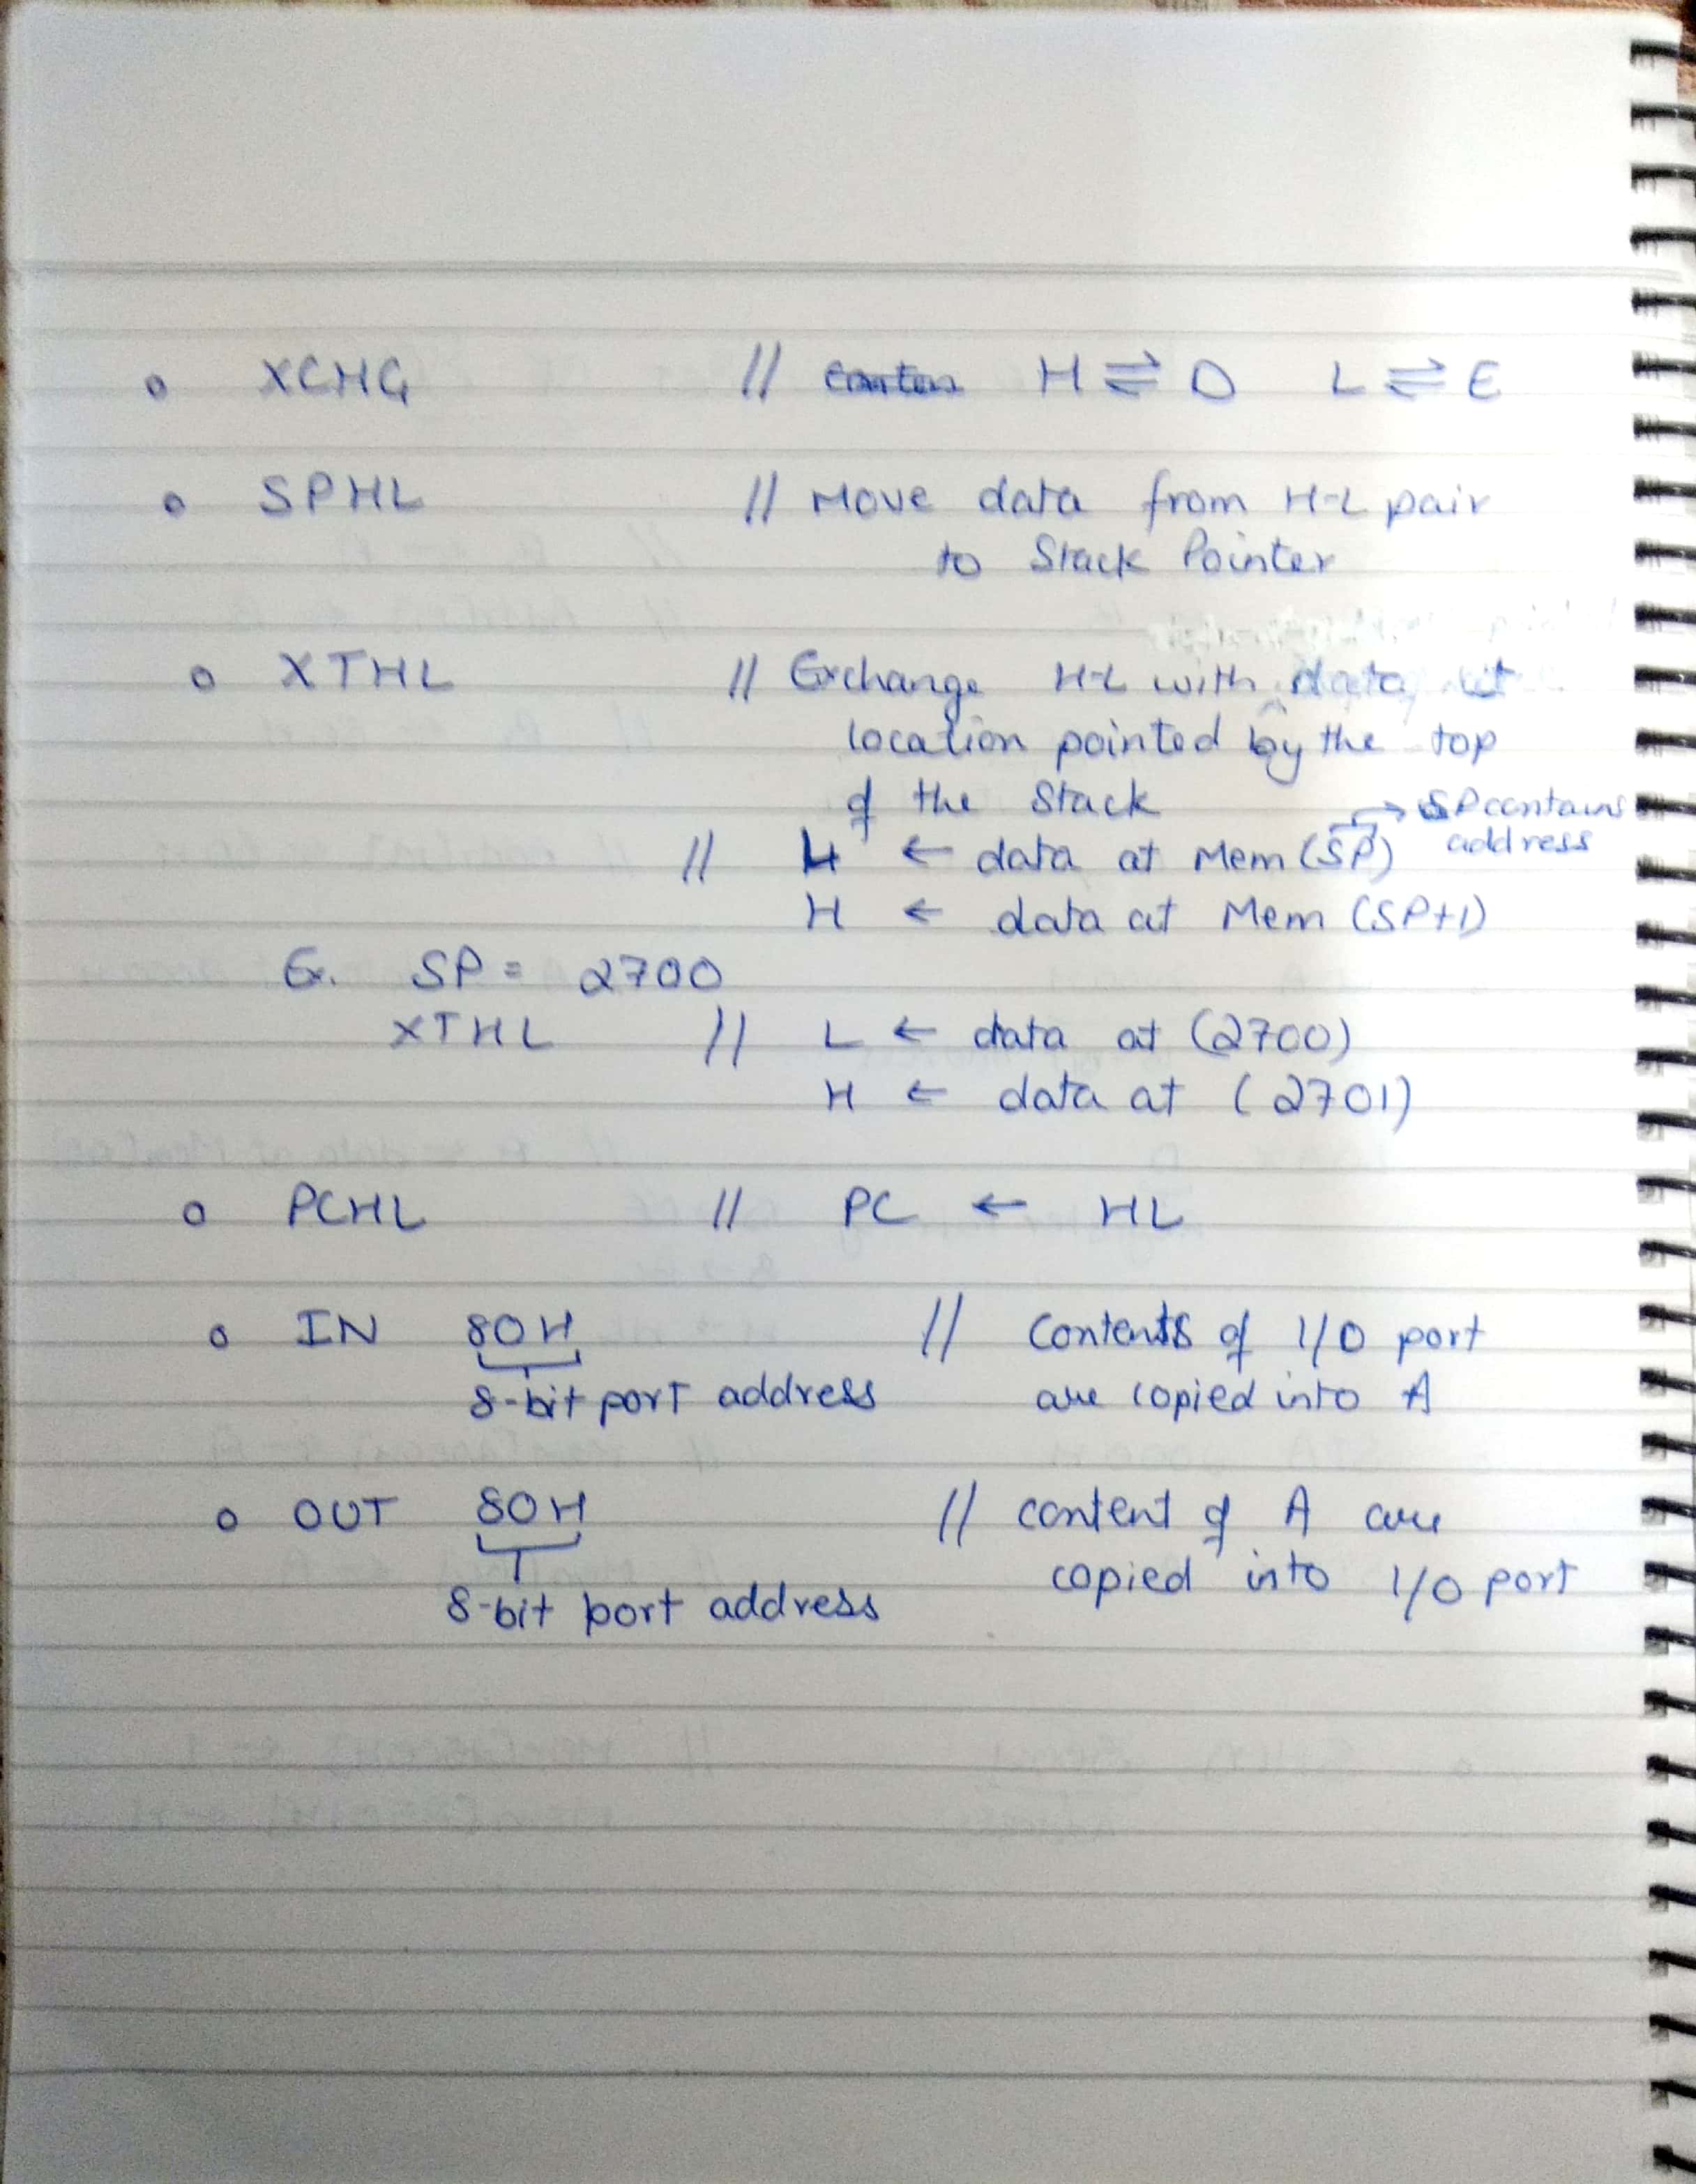 o XCHG // H ⇌ D L ⇌ E
o SPHL // Move data from H-L pair
to Stack Pointer
o XTHL // Exchange H-L with data at
location pointed by the top
of the Stack
→ SP contains
address
// L ← data at Mem (SP)
H ← data at Mem (SP+1)
Ex. SP = 2700
XTHL // L ← data at (2700)
H ← data at (2701)
o PCHL // PC ← HL
o IN 80H // Contents of I/O port
8-bit port address are copied into A
o OUT 80H // content of A are
copied into I/O port
8-bit port address